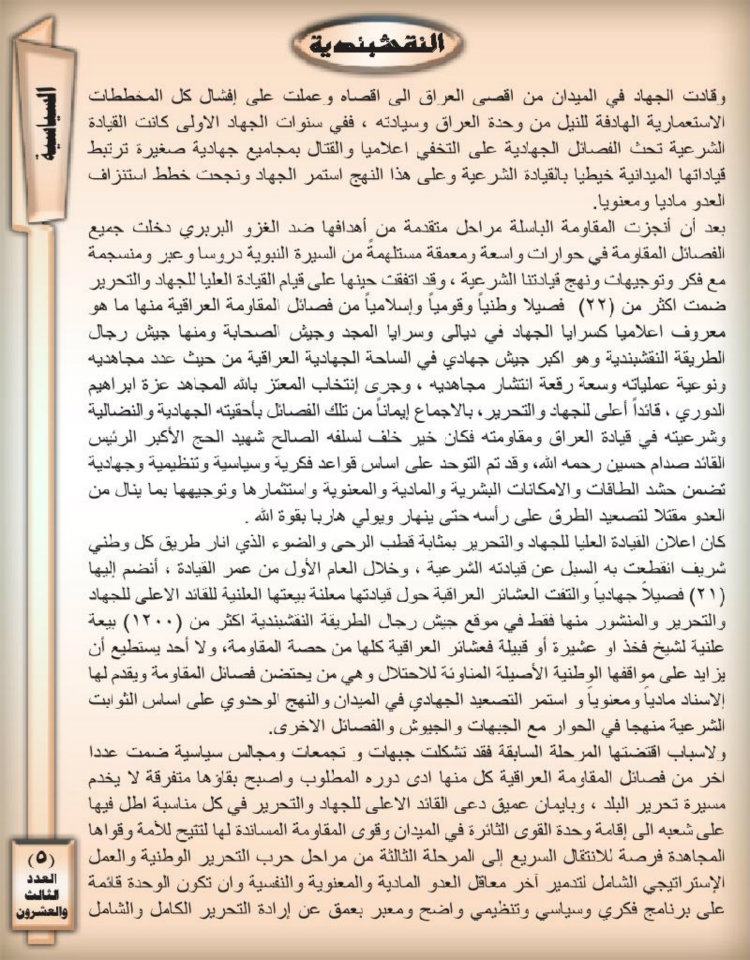 النقشبندية
السياسية
وقادت الجهاد في الميدان من اقصى العراق الى اقصاه وعملت على إفشال كل المخططات
الاستعمارية الهادفة للنيل من وحدة العراق وسيادته ، ففي سنوات الجهاد الاولى كانت القيادة
الشرعية تحث الفصائل الجهادية على التخفي اعلاميا والقتال بمجاميع جهادية صغيرة ترتبط
قياداتها الميدانية خيطيا بالقيادة الشرعية وعلى هذا النهج استمر الجهاد ونجحت خطط استنزاف
العدو ماديا ومعنويا.
بعد أن أنجزت المقاومة الباسلة مراحل متقدمة من أهدافها ضد الغزو البربري دخلت جميع
الفصائل المقاومة في حوارات واسعة ومعمقة مستلهمةً من السيرة النبوية دروسا وعبر ومنسجمة
مع فكر وتوجيهات ونهج قيادتنا الشرعية ، وقد اتفقت حينها على قيام القيادة العليا للجهاد والتحرير
ضمت اكثر من (٢٢) فصيلا وطنياً وقومياً وإسلامياً من فصائل المقاومة العراقية منها ما هو
معروف اعلاميا كسرايا الجهاد في ديالى وسرايا المجد وجيش الصحابة ومنها جيش رجال
الطريقة النقشبندية وهو اكبر جيش جهادي في الساحة الجهادية العراقية من حيث عدد مجاهديه
ونوعية عملياته وسعة رقعة انتشار مجاهديه ، وجرى إنتخاب المعتز بالله المجاهد عزة ابراهيم
الدوري ، قائداً أعلى للجهاد والتحرير، بالاجماع إيماناً من تلك الفصائل بأحقيته الجهادية والنضالية
وشرعيته في قيادة العراق ومقاومته فكان خير خلف لسلفه الصالح شهيد الحج الأكبر الرئيس
القائد صدام حسين رحمه الله، وقد تم التوحد على اساس قواعد فكرية وسياسية وتنظيمية وجهادية
تضمن حشد الطاقات والامكانات البشرية والمادية والمعنوية واستثمارها وتوجيهها بما ينال من
العدو مقتلا لتصعيد الطرق على رأسه حتى ينهار ويولي هاربا بقوة الله .
كان اعلان القيادة العليا للجهاد والتحرير بمثابة قطب الرحى والضوء الذي انار طريق كل وطني
شريف انقطعت به السبل عن قيادته الشرعية ، وخلال العام الأول من عمر القيادة ، أنضم إليها
(٢١) فصيلاً جهادياً والتفت العشائر العراقية حول قيادتها معلنة بيعتها العلنية للقائد الاعلى للجهاد
والتحرير والمنشور منها فقط في موقع جيش رجال الطريقة النقشبندية اكثر من (١٢٠٠) بيعة
علنية لشيخ فخذ او عشيرة أو قبيلة فعشائر العراقية كلها من حصة المقاومة، ولا أحد يستطيع أن
يزايد على مواقفها الوطنية الأصيلة المناوئة للاحتلال وهي من يحتضن فصائل المقاومة ويقدم لها
الاسناد مادياً ومعنوياً و استمر التصعيد الجهادي في الميدان والنهج الوحدوي على اساس الثوابت
الشرعية منهجا في الحوار مع الجبهات والجيوش والفصائل الاخرى.
ولاسباب اقتضتها المرحلة السابقة فقد تشكلت جبهات و تجمعات ومجالس سياسية ضمت عددا
اخر من فصائل المقاومة العراقية كل منها ادى دوره المطلوب واصبح بقاؤها متفرقة لا يخدم
مسيرة تحرير البلد ، وبايمان عميق دعى القائد الاعلى للجهاد والتحرير في كل مناسبة اطل فيها
على شعبه الى إقامة وحدة القوى الثائرة في الميدان وقوى المقاومة المساندة لها لتتيح للأمة وقواها
المجاهدة فرصة للانتقال السريع إلى المرحلة الثالثة من مراحل حرب التحرير الوطنية والعمل
الإستراتيجي الشامل لتدمير آخر معاقل العدو المادية والمعنوية والنفسية وان تكون الوحدة قائمة
على برنامج فكري وسياسي وتنظيمي واضح ومعبر بعمق عن إرادة التحرير الكامل والشامل
(٥)
العدد
الثالث
والعشرون